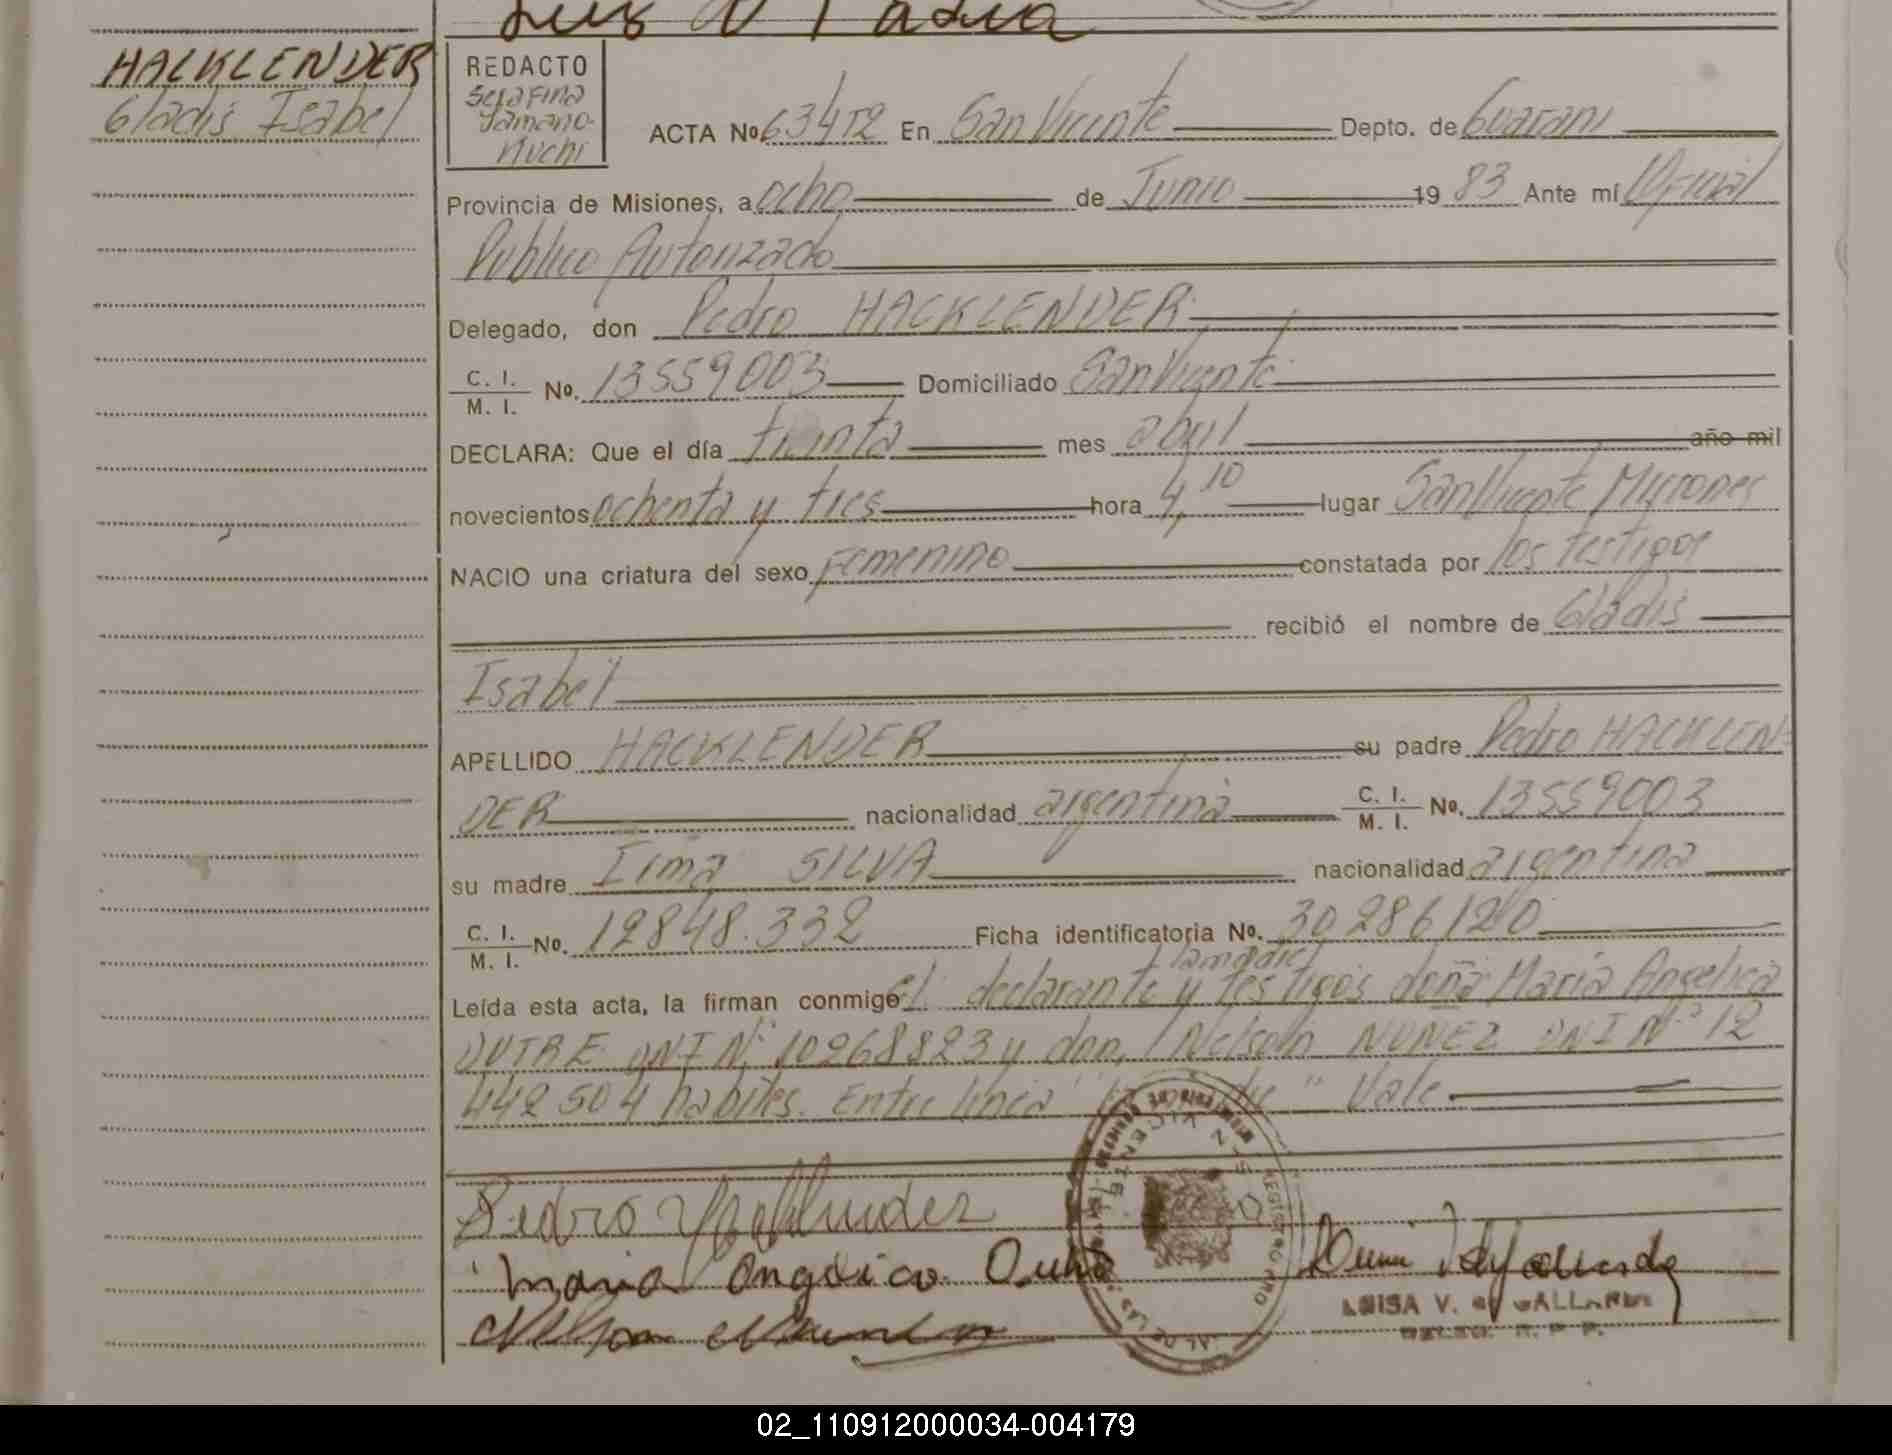 HACKLENDER
Gladis Isabel
REDACTO
Serafina
Yamano-
uchi
ACTA No 634T2 En San Vicente Depto. de Guarani
Provincia de Misiones, a ocho de Junio 19 83 Ante mí Oficial
Publico Autorizado
Delegado, don Pedro HACKLENDER
C. I. / M. I. No. 13559003 Domiciliado San Vicente
DECLARA: Que el día treinta mes abril año mil
novecientos ochenta y tres hora 4,10 lugar San Vicente Misiones
NACIO una criatura del sexo Femenino constatada por los testigos
recibió el nombre de Gladis
Isabel
APELLIDO HACKLENDER su padre Pedro HACKLEN-
DER nacionalidad argentina C. I. / M. I. No. 13559003
su madre Irma SILVA nacionalidad argentina
C. I. / M. I. No. 12848.332 Ficha identificatoria No. 30286120
la madre
Leída esta acta, la firman conmigo el declarante y testigos doña Maria Angelica
DUTRE DNI Nº 10268823 y don Nelson NUNEZ DNI Nº 12
442504 habiles. Entre linea " " Vale
Pedro Hacklender
Maria Angelica
SAN VICENTE
REGISTRO
LUISA V. de GALLARDO
02_110912000034-004179